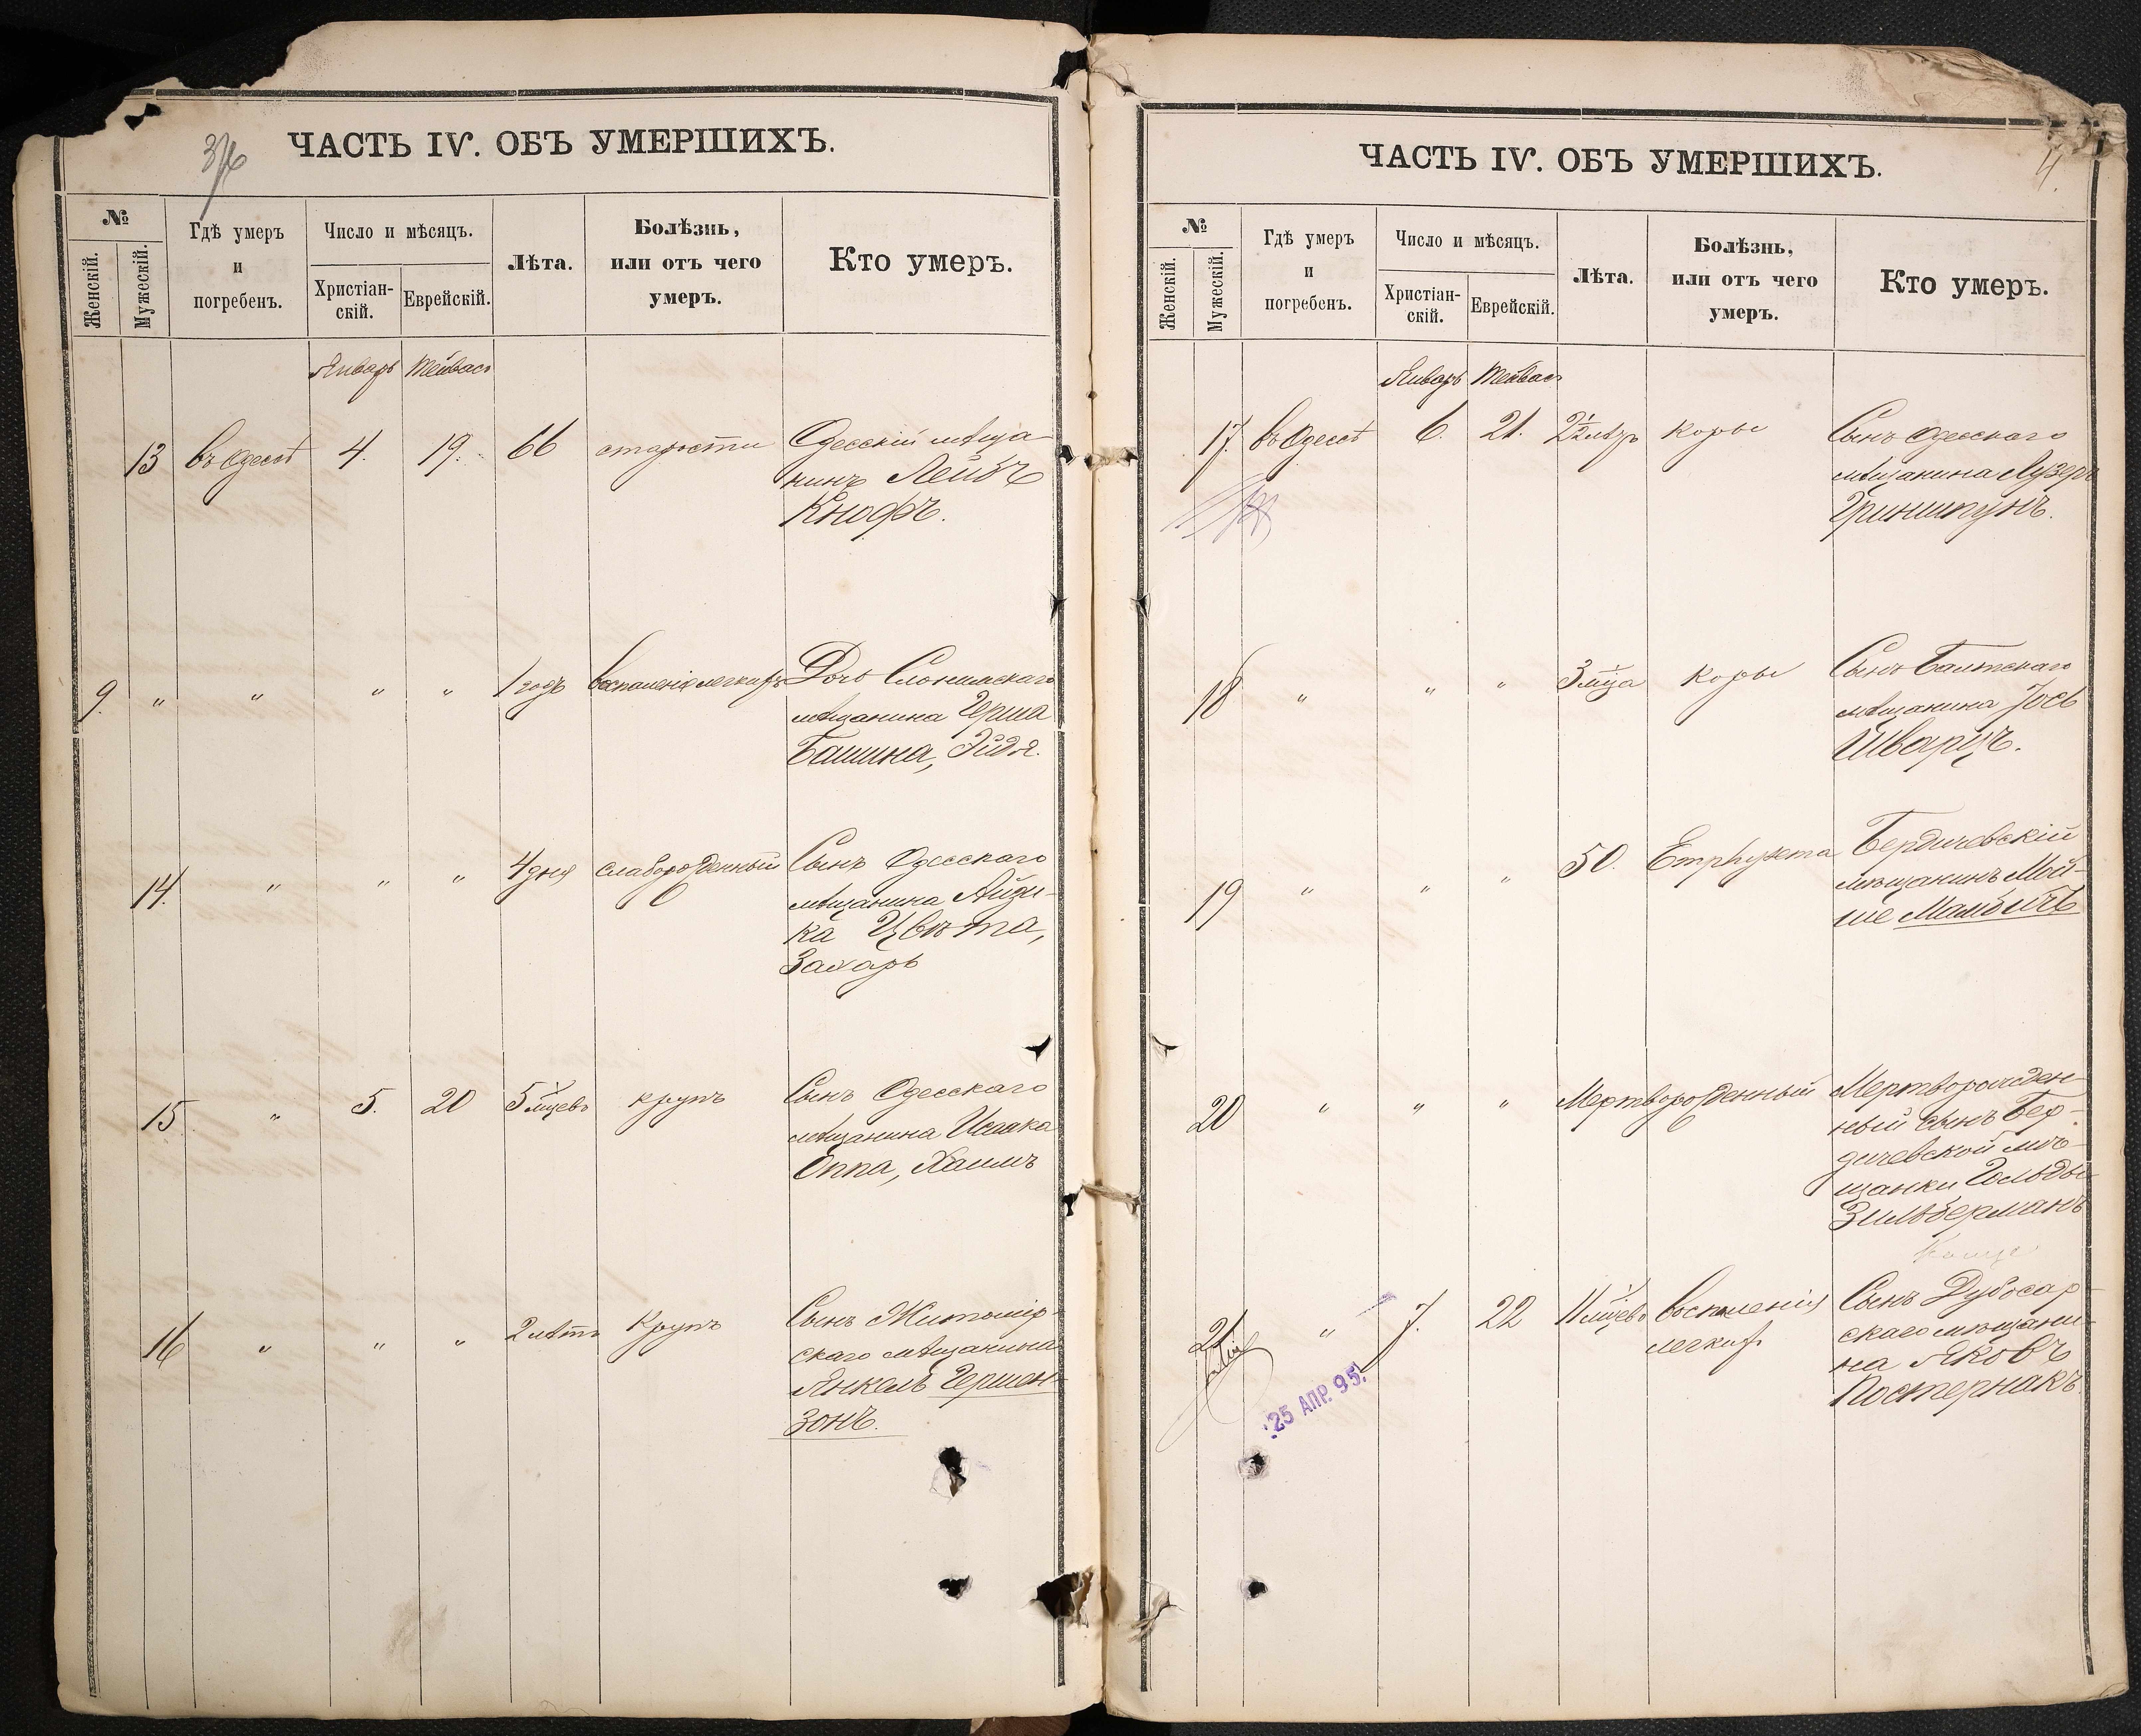 ЧАСТЬ IV. ОБЪ УМЕРШИХЪ.
№
Женскій.
Мужескій.
Гдѣ умеръ
и
погребенъ.
Число и мѣсяцъ.
Христіан-
скій.
Еврейскій.
Лѣта.
Болѣзнь,
или отъ чего
умеръ.
Кто умеръ.
Январь Тейвасъ
13 въ Одессѣ 4. 19. 66 старости Одесскій мѣща-
нинъ Лейбъ
Кнофъ.
9. " " " " 1 годъ воспаленіе легкихъ Дочь Слонимскаго
мѣщанина Герша
Башина, Эйдя.
14. " " " 4 дня слаборожденный Сынъ Одесскаго
мѣщанина Айзи-
ка Цвѣта,
Захарь
15 " 5. 20 5 мѣцевъ крупъ Сынъ Одесскаго
мѣщанина Исаака
Оппа, Хаимъ
16 " " " 2 лѣтъ Крупъ Сынъ Житомір-
скаго мѣщанина
Янкель Гершен-
зонъ.
ЧАСТЬ IV. ОБЪ УМЕРШИХЪ.
4.
№
Женскій.
Мужескій.
Гдѣ умеръ
и
погребенъ.
Число и мѣсяцъ.
Христіан-
скій.
Еврейскій.
Лѣта.
Болѣзнь,
или отъ чего
умеръ.
Кто умеръ.
Январь Тейвасъ
17. въ Одессѣ 6. 21. 2½ лѣтъ корье Сынъ Одесскаго
мѣщанина Лузеръ
Гриншпунъ.
18 " " " 3 мѣца корье Сынъ Балтскаго
мѣщанина Іось
Шварцъ.
19 " " " 50. Emphysema Бердичевскій
мѣщанинъ Мой-
ше Мамбичъ
20 " " " Мертворожденный Мертворожден-
ный сынъ Бер-
дичевской мѣ-
щанки Гольды
Зильберманъ
21 " 7. 22 11 мѣцевъ воспаленія Сынъ Дубосар-
легкихъ скаго мѣщани-
на Яковъ
Постернакъ
25 АПР. 95.